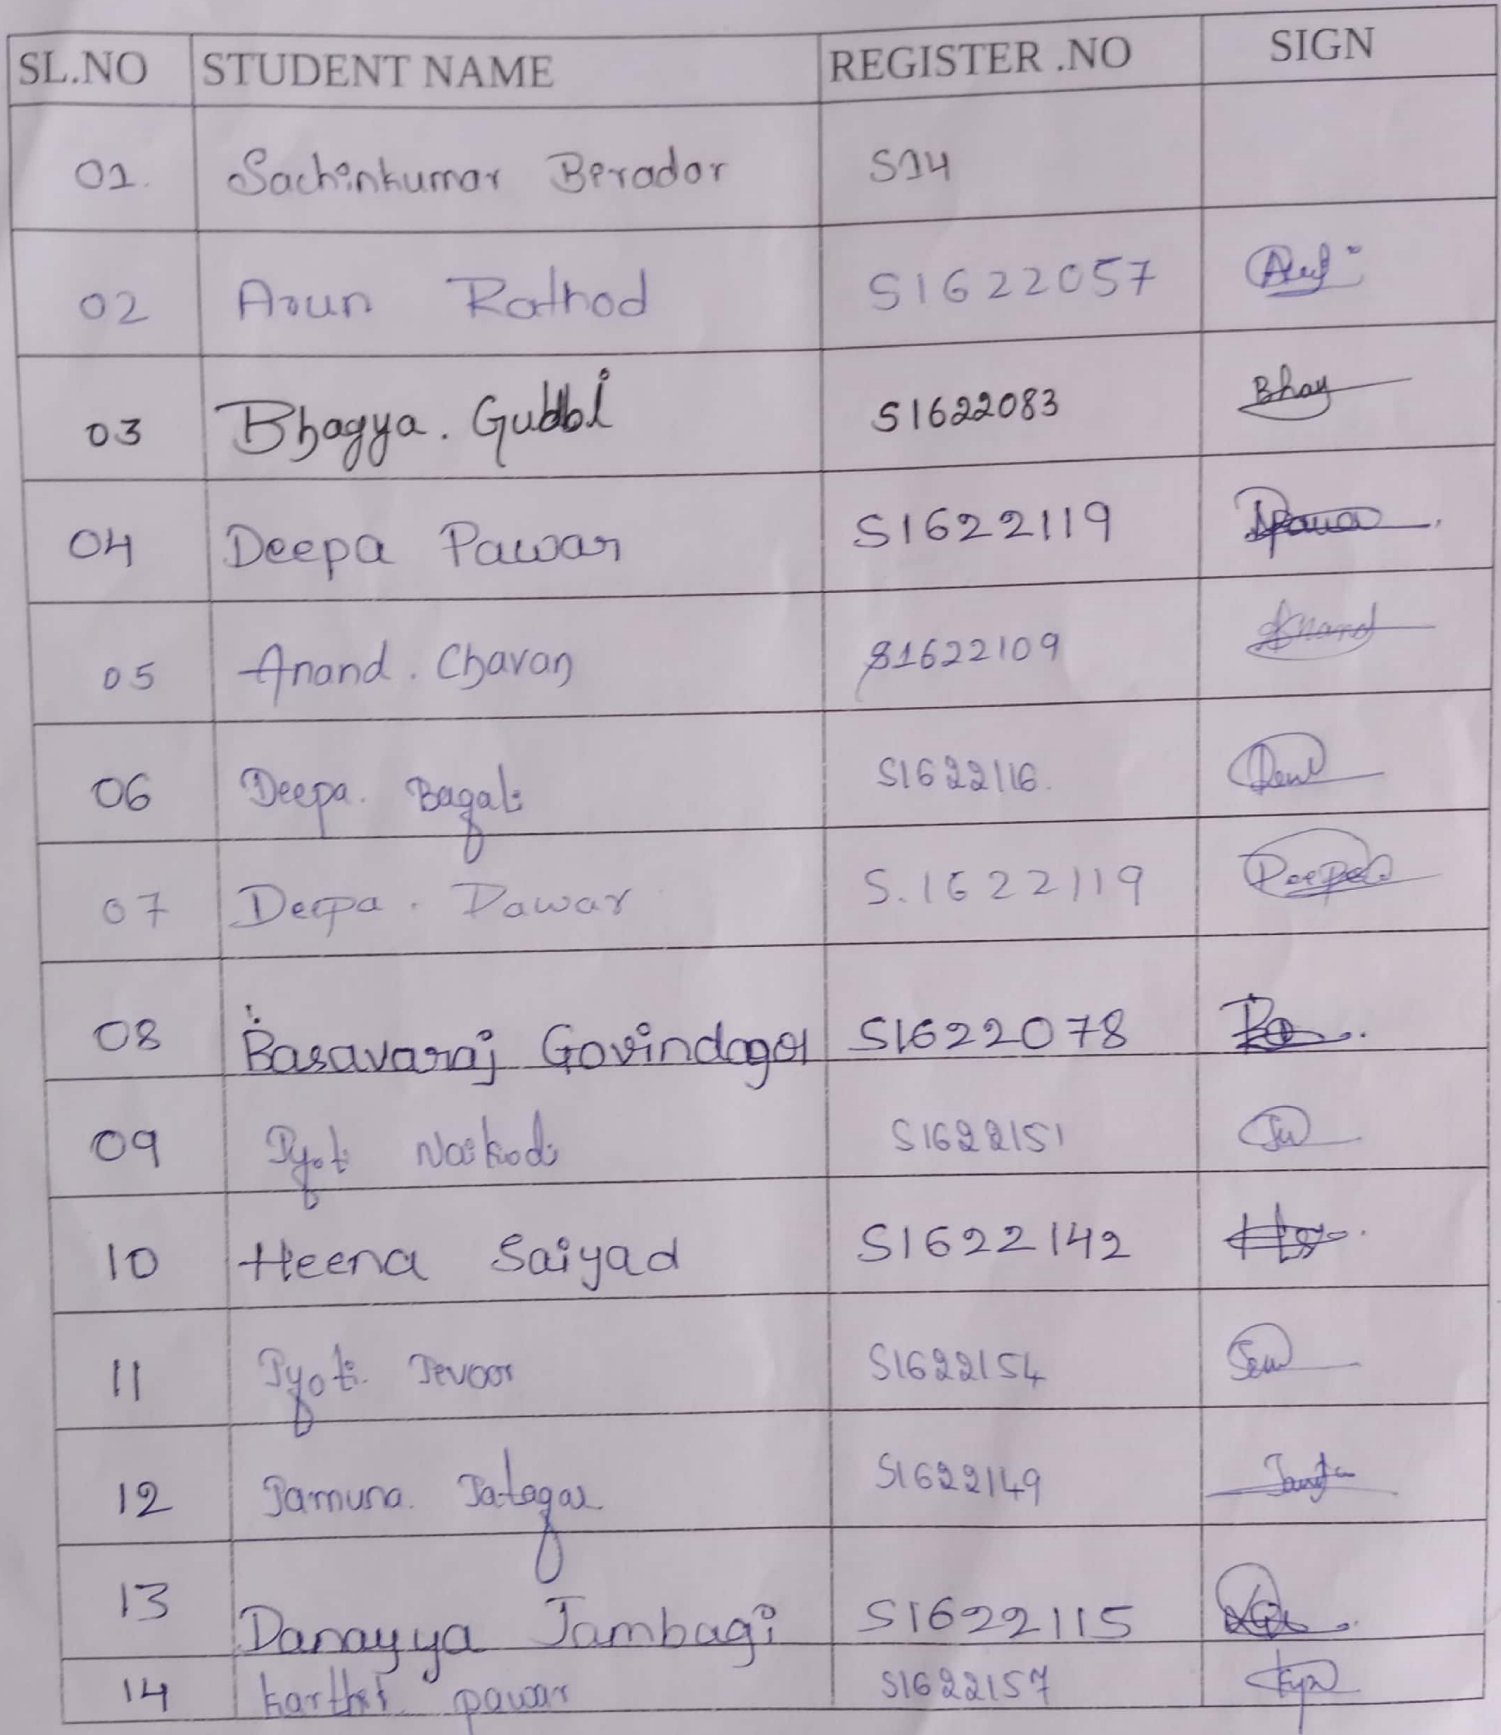 SL.NO STUDENT NAME REGISTER .NO SIGN
01. Sachinkumar Berador S14
02 Arun Rathod S1622057
03 Bhagya. Gubbi S1622083 Bhay
04 Deepa Pawar S1622119
05 Anand. Chavan S1622109 Anand
06 Deepa. Bagali S1622116.
07 Deepa. Pawar S.1622119 Deepa
08 Basavaraj Govindagol S1622078
09 Jyoti Naikodi S1622151
10 Heena Saiyad S1622142
11 Jyoti. Jevoor S1622154
12 Jamuna. Jatagar S1622149
13 Danayya Jambagi S1622115
14 Karthik pawar S1622157